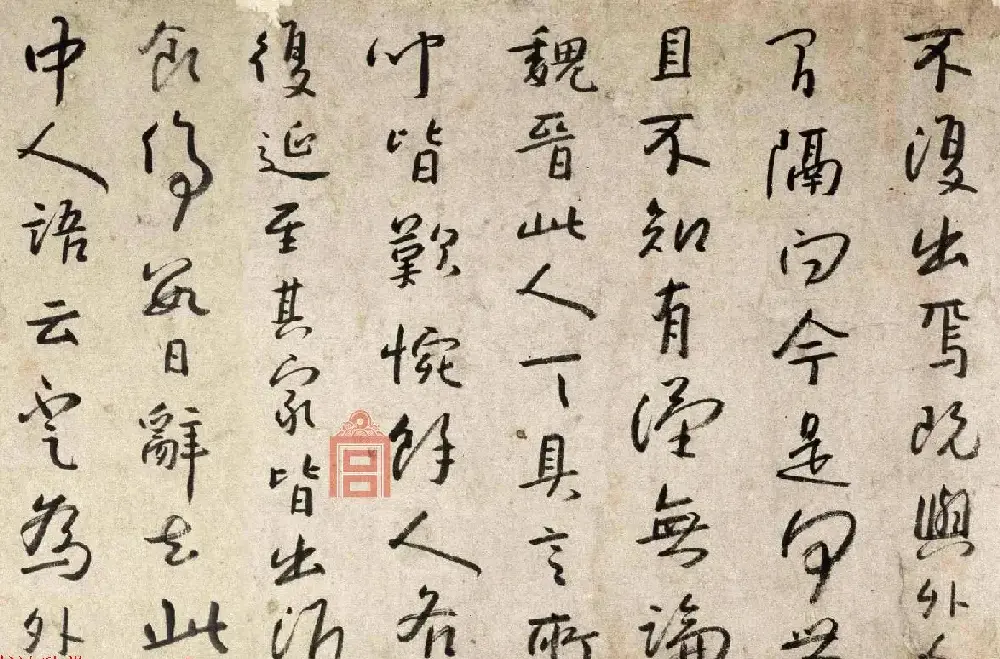 不復出焉既與外
間隔問今是何世
且不知有漢無論
魏晉此人一一具言所
聞皆歎惋餘人各
復延至其家皆出酒
食停數日辭去此
中人語云不足為外